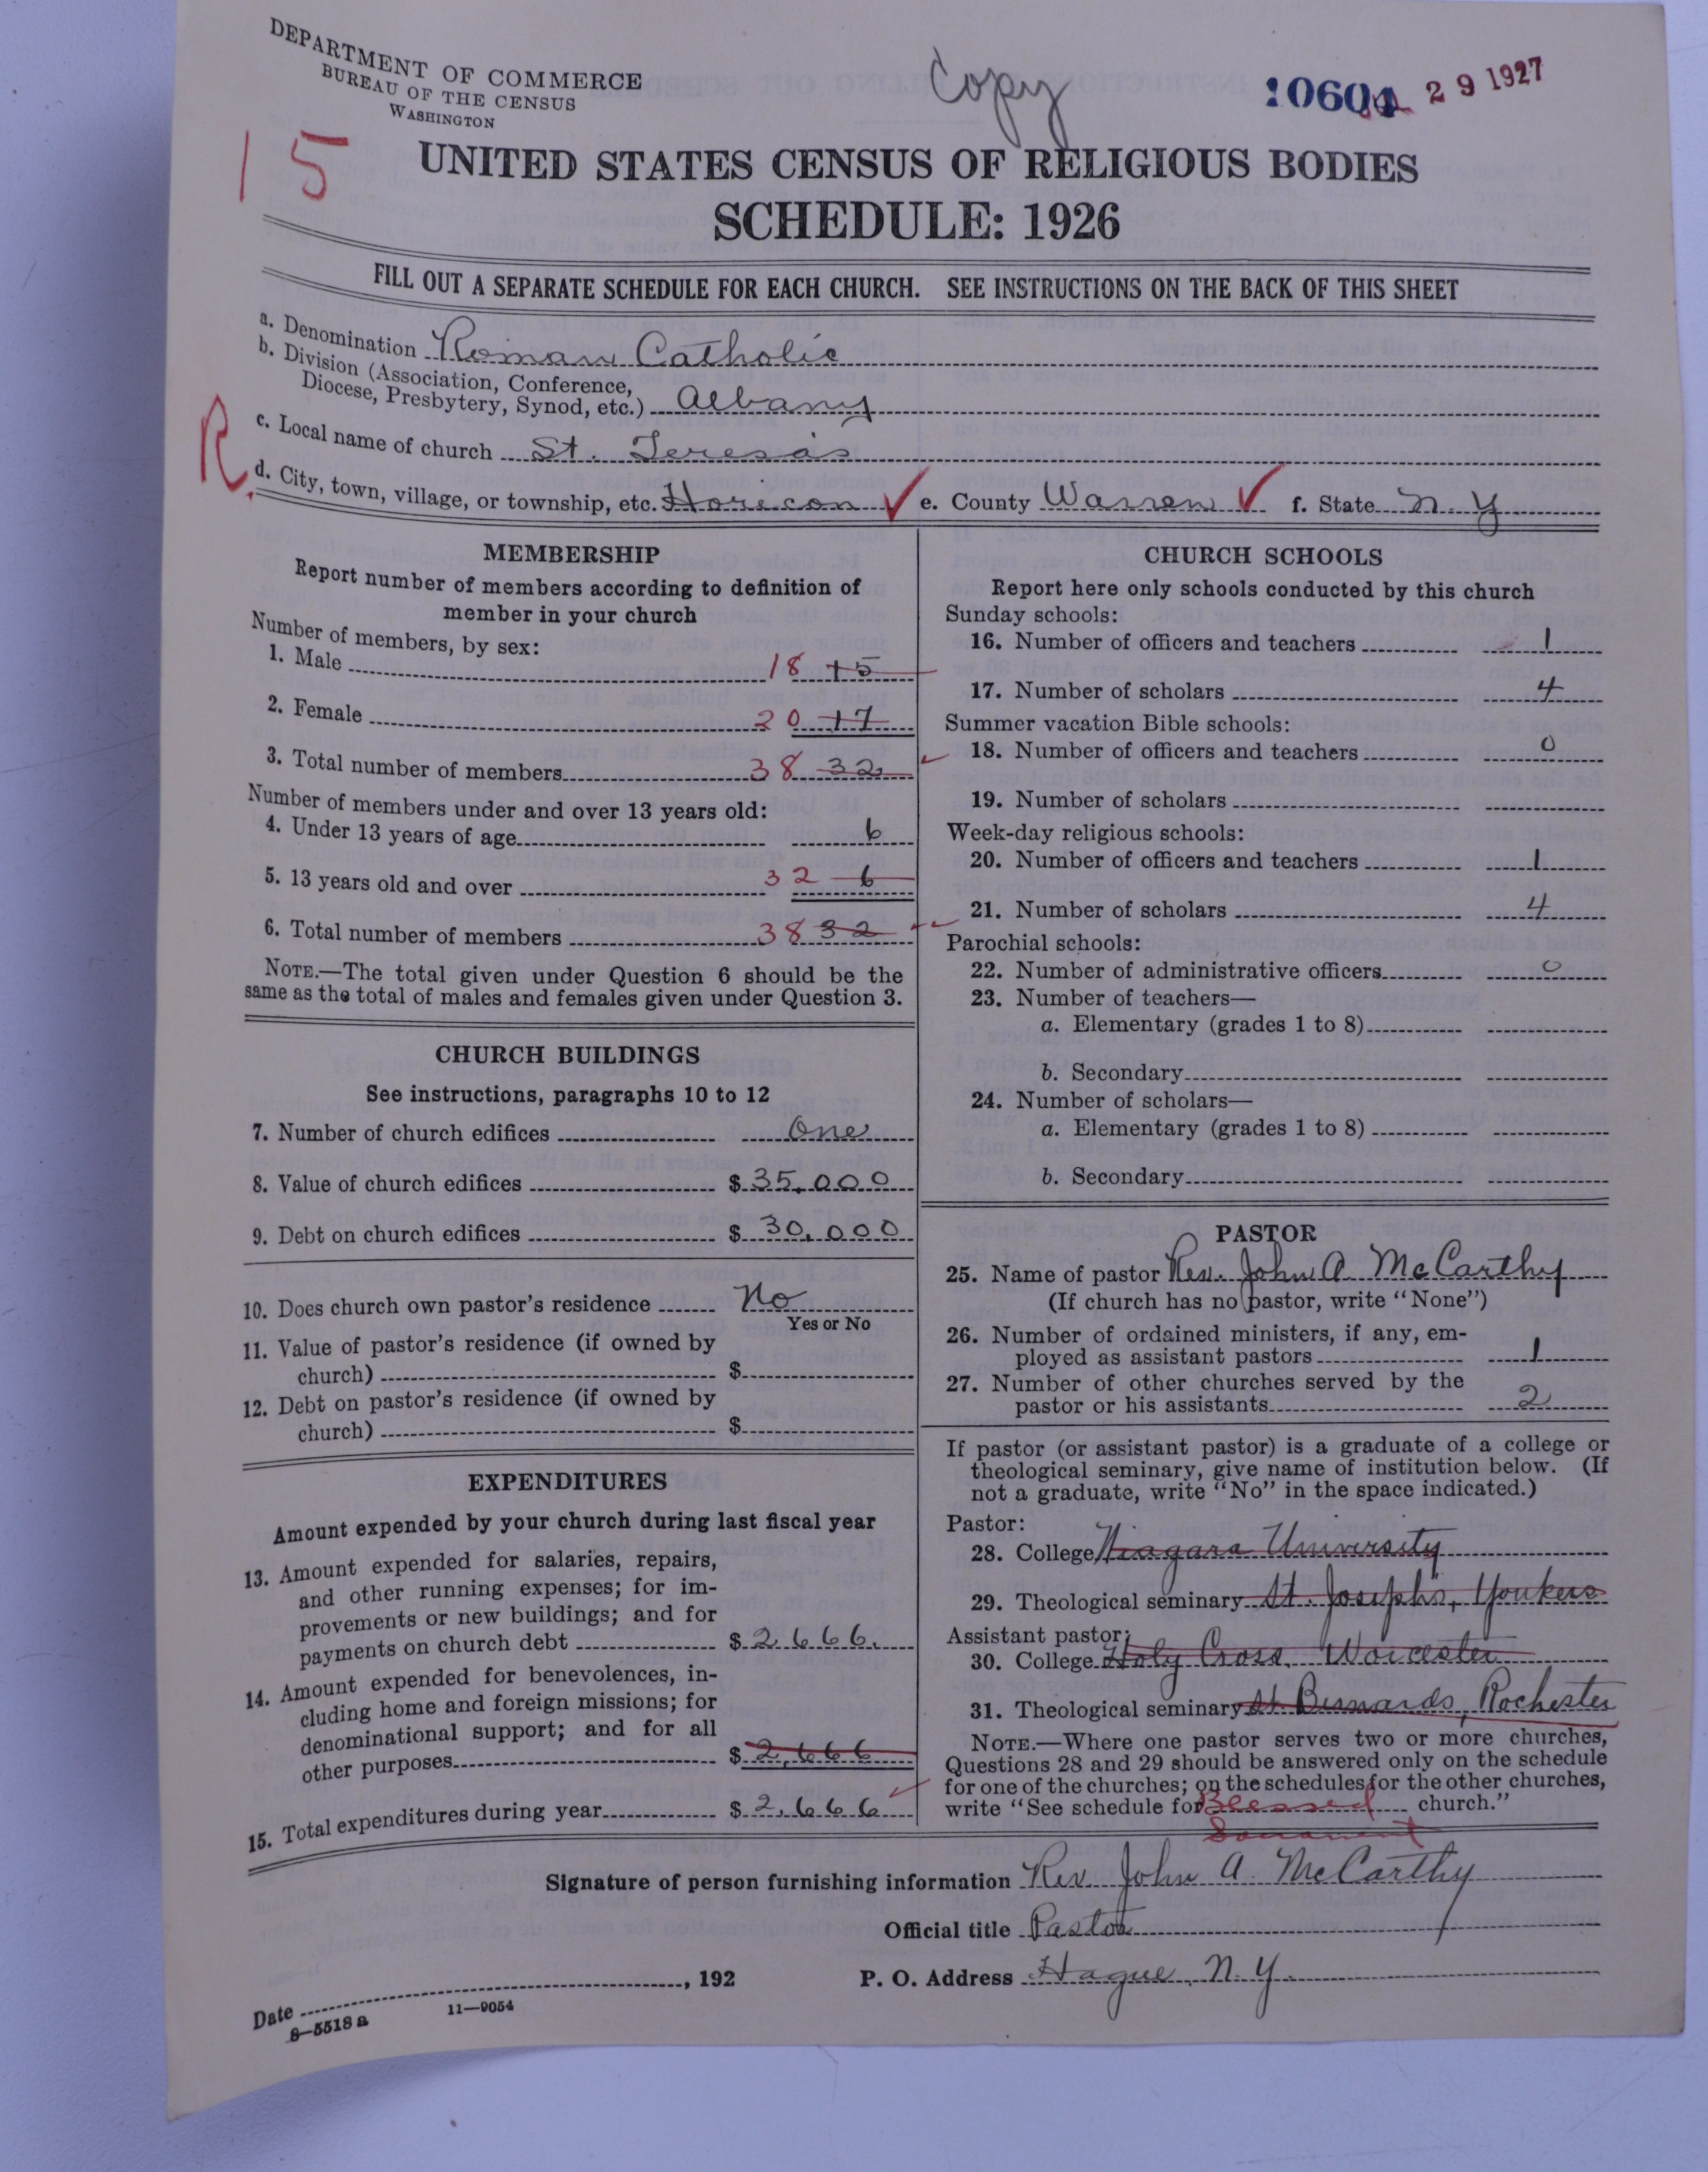 DEPARTMENT OF COMMERCE
BUREAU OF THE CENSUS
WASHINGTON
Copy
29 1927
15
UNITED STATES CENSUS OF RELIGIOUS BODIES
SCHEDULE: 1926
FILL OUT A SEPARATE SCHEDULE FOR EACH CHURCH. SEE INSTRUCTIONS ON THE BACK OF THIS SHEET
a. Denomination Roman Catholic
b. Division (Association, Conference,
Diocese, Presbytery, Synod, etc.) Albany
c. Local name of church St. Teresa's
R.
d. City, town, village, or township, etc. Horicon ✓ e. County Warren ✓ f. State N. Y
MEMBERSHIP
Report number of members according to definition of
member in your church
Number of members, by sex:
1. Male 18 15
2. Female 20 17
3. Total number of members 38 32
Number of members under and over 13 years old:
4. Under 13 years of age 6
5. 13 years old and over 32 6
6. Total number of members 38 32
NOTE.—The total given under Question 6 should be the
same as the total of males and females given under Question 3.
CHURCH BUILDINGS
See instructions, paragraphs 10 to 12
7. Number of church edifices One
8. Value of church edifices $ 35,000
9. Debt on church edifices $ 30,000
10. Does church own pastor's residence No
Yes or No
11. Value of pastor's residence (if owned by
church) $
12. Debt on pastor's residence (if owned by
church) $
EXPENDITURES
Amount expended by your church during last fiscal year
13. Amount expended for salaries, repairs,
and other running expenses; for im-
provements or new buildings; and for
payments on church debt $ 2666.
14. Amount expended for benevolences, in-
cluding home and foreign missions; for
denominational support; and for all
other purposes $ 2,666
15. Total expenditures during year $ 2,666
CHURCH SCHOOLS
Report here only schools conducted by this church
Sunday schools:
16. Number of officers and teachers 1
17. Number of scholars 4
Summer vacation Bible schools:
18. Number of officers and teachers 0
19. Number of scholars
Week-day religious schools:
20. Number of officers and teachers 1
21. Number of scholars 4
Parochial schools:
22. Number of administrative officers 0
23. Number of teachers—
a. Elementary (grades 1 to 8)
b. Secondary
24. Number of scholars—
a. Elementary (grades 1 to 8)
b. Secondary
PASTOR
25. Name of pastor Rev. John A. McCarthy
(If church has no pastor, write "None")
26. Number of ordained ministers, if any, em-
ployed as assistant pastors 1
27. Number of other churches served by the
pastor or his assistants 2
If pastor (or assistant pastor) is a graduate of a college or
theological seminary, give name of institution below. (If
not a graduate, write "No" in the space indicated.)
Pastor:
28. College Niagara University
29. Theological seminary St. Joseph's, Yonkers
Assistant pastor:
30. College Holy Cross, Worcester
31. Theological seminary St. Bernards, Rochester
NOTE.—Where one pastor serves two or more churches,
Questions 28 and 29 should be answered only on the schedule
for one of the churches; on the schedules for the other churches,
write "See schedule for Blessed church."
Sacrament
Signature of person furnishing information Rev. John A. McCarthy
Official title Pastor
Date , 192 P. O. Address Hague, N. Y.
8—5518 a 11—9054